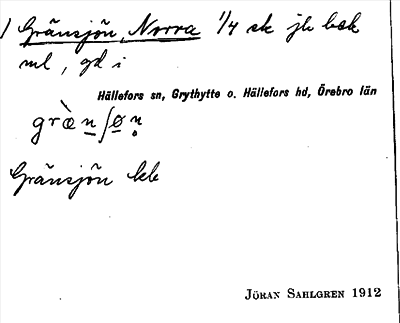 1 Gränsjön, Norra 1/4 sk jb bsk
ml, gd i
Hällefors sn, Grythytte o. Hällefors hd, Örebro län
græ̀nʃøn
Gränsjön kb
JÖRAN SAHLGREN 1912